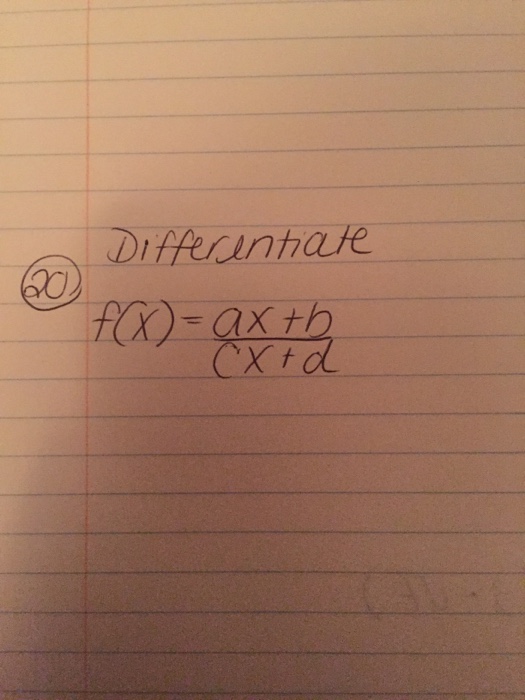 Differentiate
20) f(x) = ax+b
cx+d